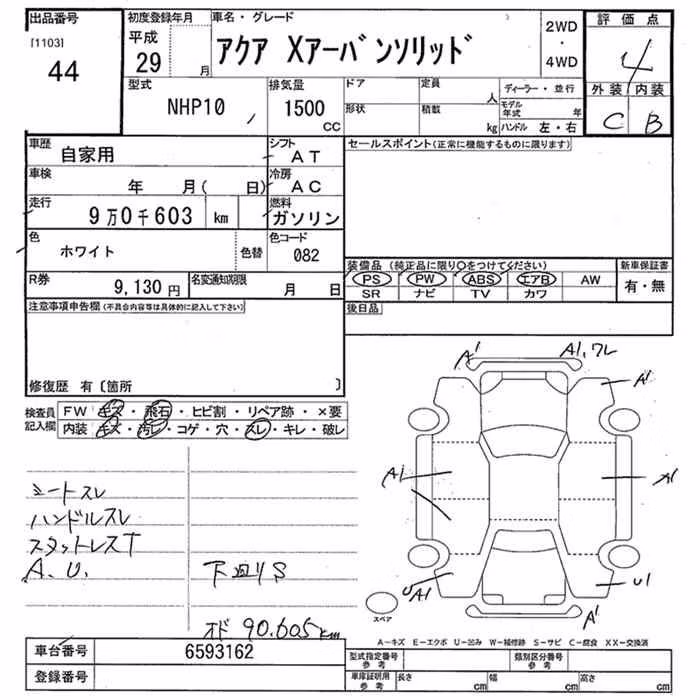 出品番号
[1103]
44
初度登録年月
平成
29 月
車名・グレード
アクア Xアーバンソリッド
2WD
・
4WD
評価点
4
外装 内装
C B
型式
NHP10
排気量
1500
CC
ドア
形状
定員
人
積載
kg
ディーラー・並行
モデル年式 年
ハンドル 左・右
車歴
自家用
シフト
AT
車検
年 月( 日)
冷房
AC
走行
9万0千603 km
燃料
ガソリン
色
ホワイト
色替
色コード
082
R券
9,130円
名変通知期限
月 日
セールスポイント(正常に機能するものに限ります)
装備品 (純正品に限り○をつけてください)
PS PW ABS エアB AW
SR ナビ TV カワ
新車保証書
有・無
後日品
注意事項申告欄(不具合内容等は具体的に記入して下さい)
修復歴 有〔箇所 〕
検査員
記入欄
FW キズ・飛石・ヒビ割・リペア跡・×要
内装 キズ・汚レ・コゲ・穴・スレ・キレ・破レ
シートスレ
ハンドルスレ
スタットレスT
A.U.
下回りS
オド 90,605km
A1
A1,ワレ
A1
A1
A1
U A1
U1
A1
スペア
A-キズ E-エクボ U-凹み W-補修跡 S-サビ C-腐食 XX-交換済
車台番号
6593162
登録番号
型式指定番号
参考
類別区分番号
参考
車庫証明用
参考
長さ cm
幅 cm
高さ cm